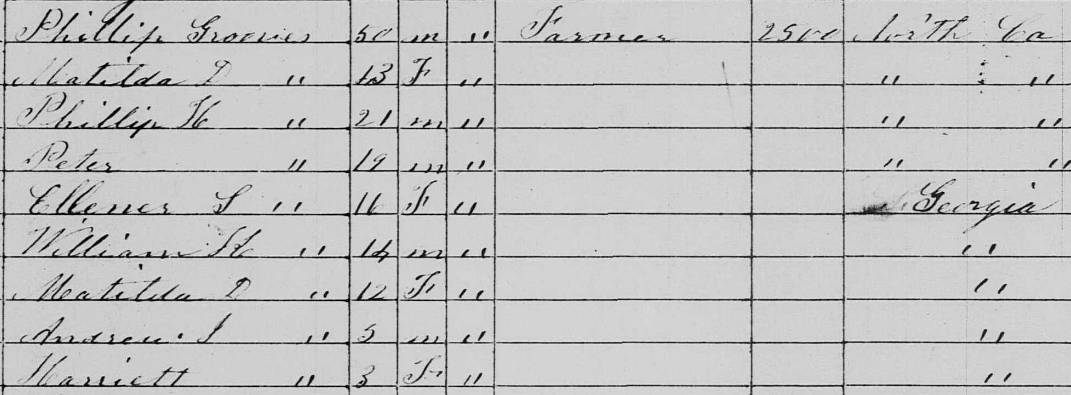 Phillip Grooves 50 m " Farmer 2500 North Ca
Matilda D " 43 F " " "
Phillip H " 21 m " " "
Peter " 19 m " " "
Ellener S " 16 F " Georgia
William H " 14 m " "
Matilda D " 12 F " "
Andrew J " 5 m " "
Harriett " 3 F " "